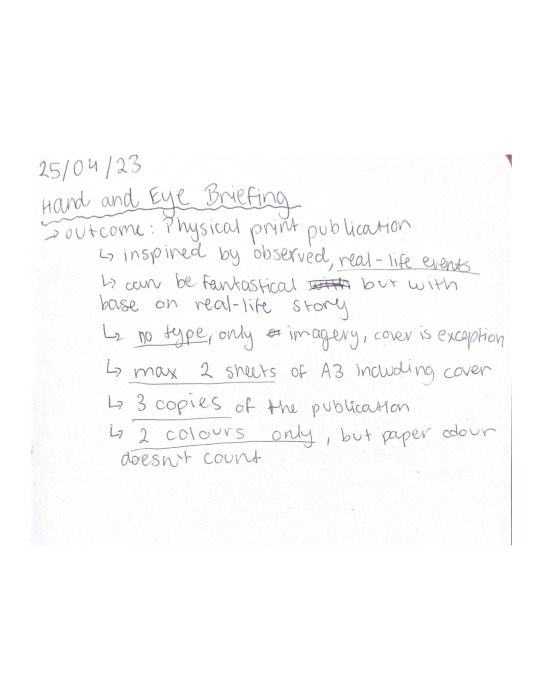 25/04/23
Hand and Eye Briefing
→ outcome: Physical print publication
↳ inspired by observed, real-life events
↳ can be fantastical with but with
base on real-life story
↳ no type, only imagery, cover is exception
↳ max 2 sheets of A3 including cover
↳ 3 copies of the publication
↳ 2 colours only, but paper colour
doesn't count